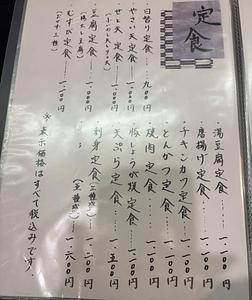 定食
日替り定食 九〇〇円
やさい天定食 一、一〇〇円
せと天定食 一、二〇〇円
豆腐定食 一、一〇〇円
むすび定食 一、一〇〇円
(おむすび三種)
湯豆腐定食 一、一〇〇円
唐揚げ定食 一、一〇〇円
チキンカツ定食 一、一〇〇円
とんかつ定食 一、一〇〇円
焼肉定食 一、一〇〇円
豚しょうが焼定食 一、一〇〇円
天ぷら定食 一、五〇〇円
刺身定食(三種盛) 一、二〇〇円
(五種盛) 一、六〇〇円
※表示価格はすべて税込みです。